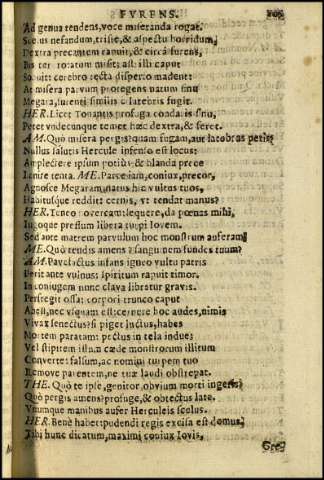 FVRENS.
Ad genua tendens, voce miseranda rogat.
Scelus nefandum, triste, & aspectu horridum,
Dextra precantem rapuit, & circà furens,
Bis ter rotatum misit; ast illi caput
Sonuit: cerebro tecta disperso madent:
At misera paruum protegens natum sinu
Megara, furenti similis è latebris fugit.
HER. Licet Tonantis profuga condaris sinu,
Petet vndecunque temet hæc dextra, & feret.
AM. Quò misera pergis? quam fugam, aut latebras petis?
Nullus salutis Hercule infenso est locus:
Amplectere ipsum potiùs, & blanda prece
Lenire tenta. ME. Parce iam, coniux, precor,
Agnosce Megaram. natus hic vultus tuos,
Habitúsque reddit: cernis, vt tendat manus?
HER. Teneo nouercam. sequere, da pœnas mihi,
Iugoque pressum libera turpi Iouem.
Sed ante matrem paruulum hoc monstrum auferam.
ME. Quò tendis amens? sanguinem fundes tuum?
AM. Pauefactus infans igneo vultu patris
Perit ante vulnus: spiritum rapuit timor.
In coniugem nunc claua libratur grauis.
Perfregit ossa: corpori trunco caput
Abest, nec vsquam est. cernere hoc audes, nimis
Viuax senectus? si piget luctus, habes
Mortem paratam: pectus in tela indue:
Vel stipitem istum cæde monstrorum illitum
Conuerte: falsum, ac nomini turpem tuo
Remoue parentem, ne tuæ laudi obstrepat.
THE. Quò te ipse, genitor, obuium morti ingeris?
Quò pergis amens? profuge, & obtectus late.
Vnumque manibus aufer Herculeis scelus.
HER. Benè habet: pudendi regis excisa est domus.
Tibi hunc dicatum, maximi coniux Iouis,
Greg